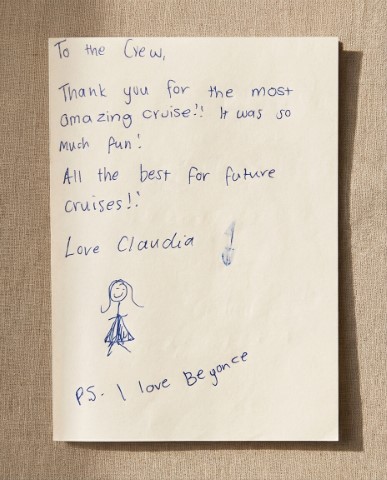 To the Crew,
Thank you for the most
amazing cruise!! It was so
much fun!
All the best for future
cruises!!
Love Claudia
P.S. I love Beyonce